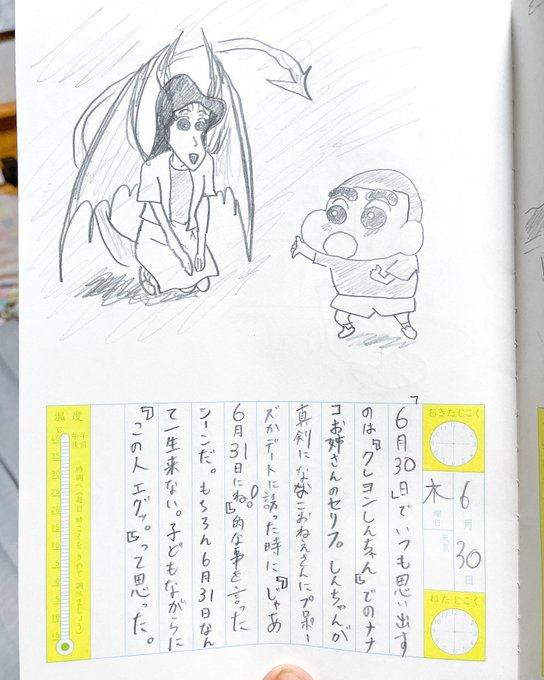 おきたじこく
6月30日
木曜日
天気
ねたじこく
「6月30日」でいつも思い出す
のは『クレヨンしんちゃん』でのナナ
コお姉さんのセリフ。しんちゃんが
真剣にななこおねえさんにプロポー
ズかデートに誘った時に『じゃあ
6月31日にね。』的な事を言った
シーンだ。もちろん6月31日なん
て一生来ない。子どもながらに
『この人エグッ。』って思った。
温度
午前
午後
時調べ(毎日時こくをきめて調べましょう)
℃
40
35
30
25
20
15
10
5
0
5
10
15